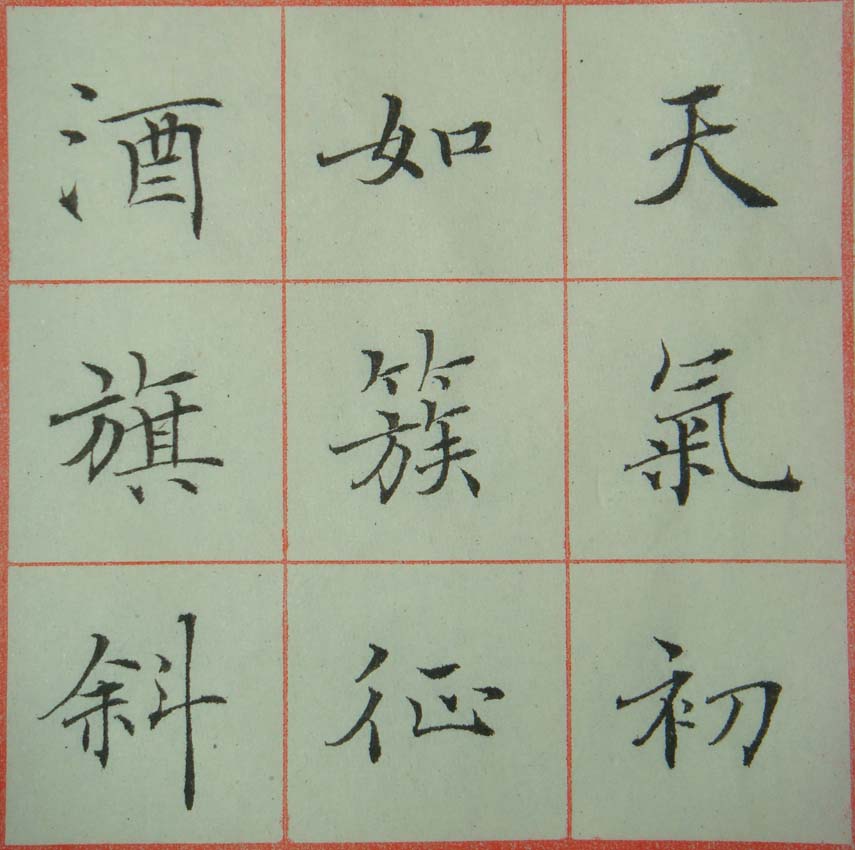 天氣初
如簇征
酒旗斜